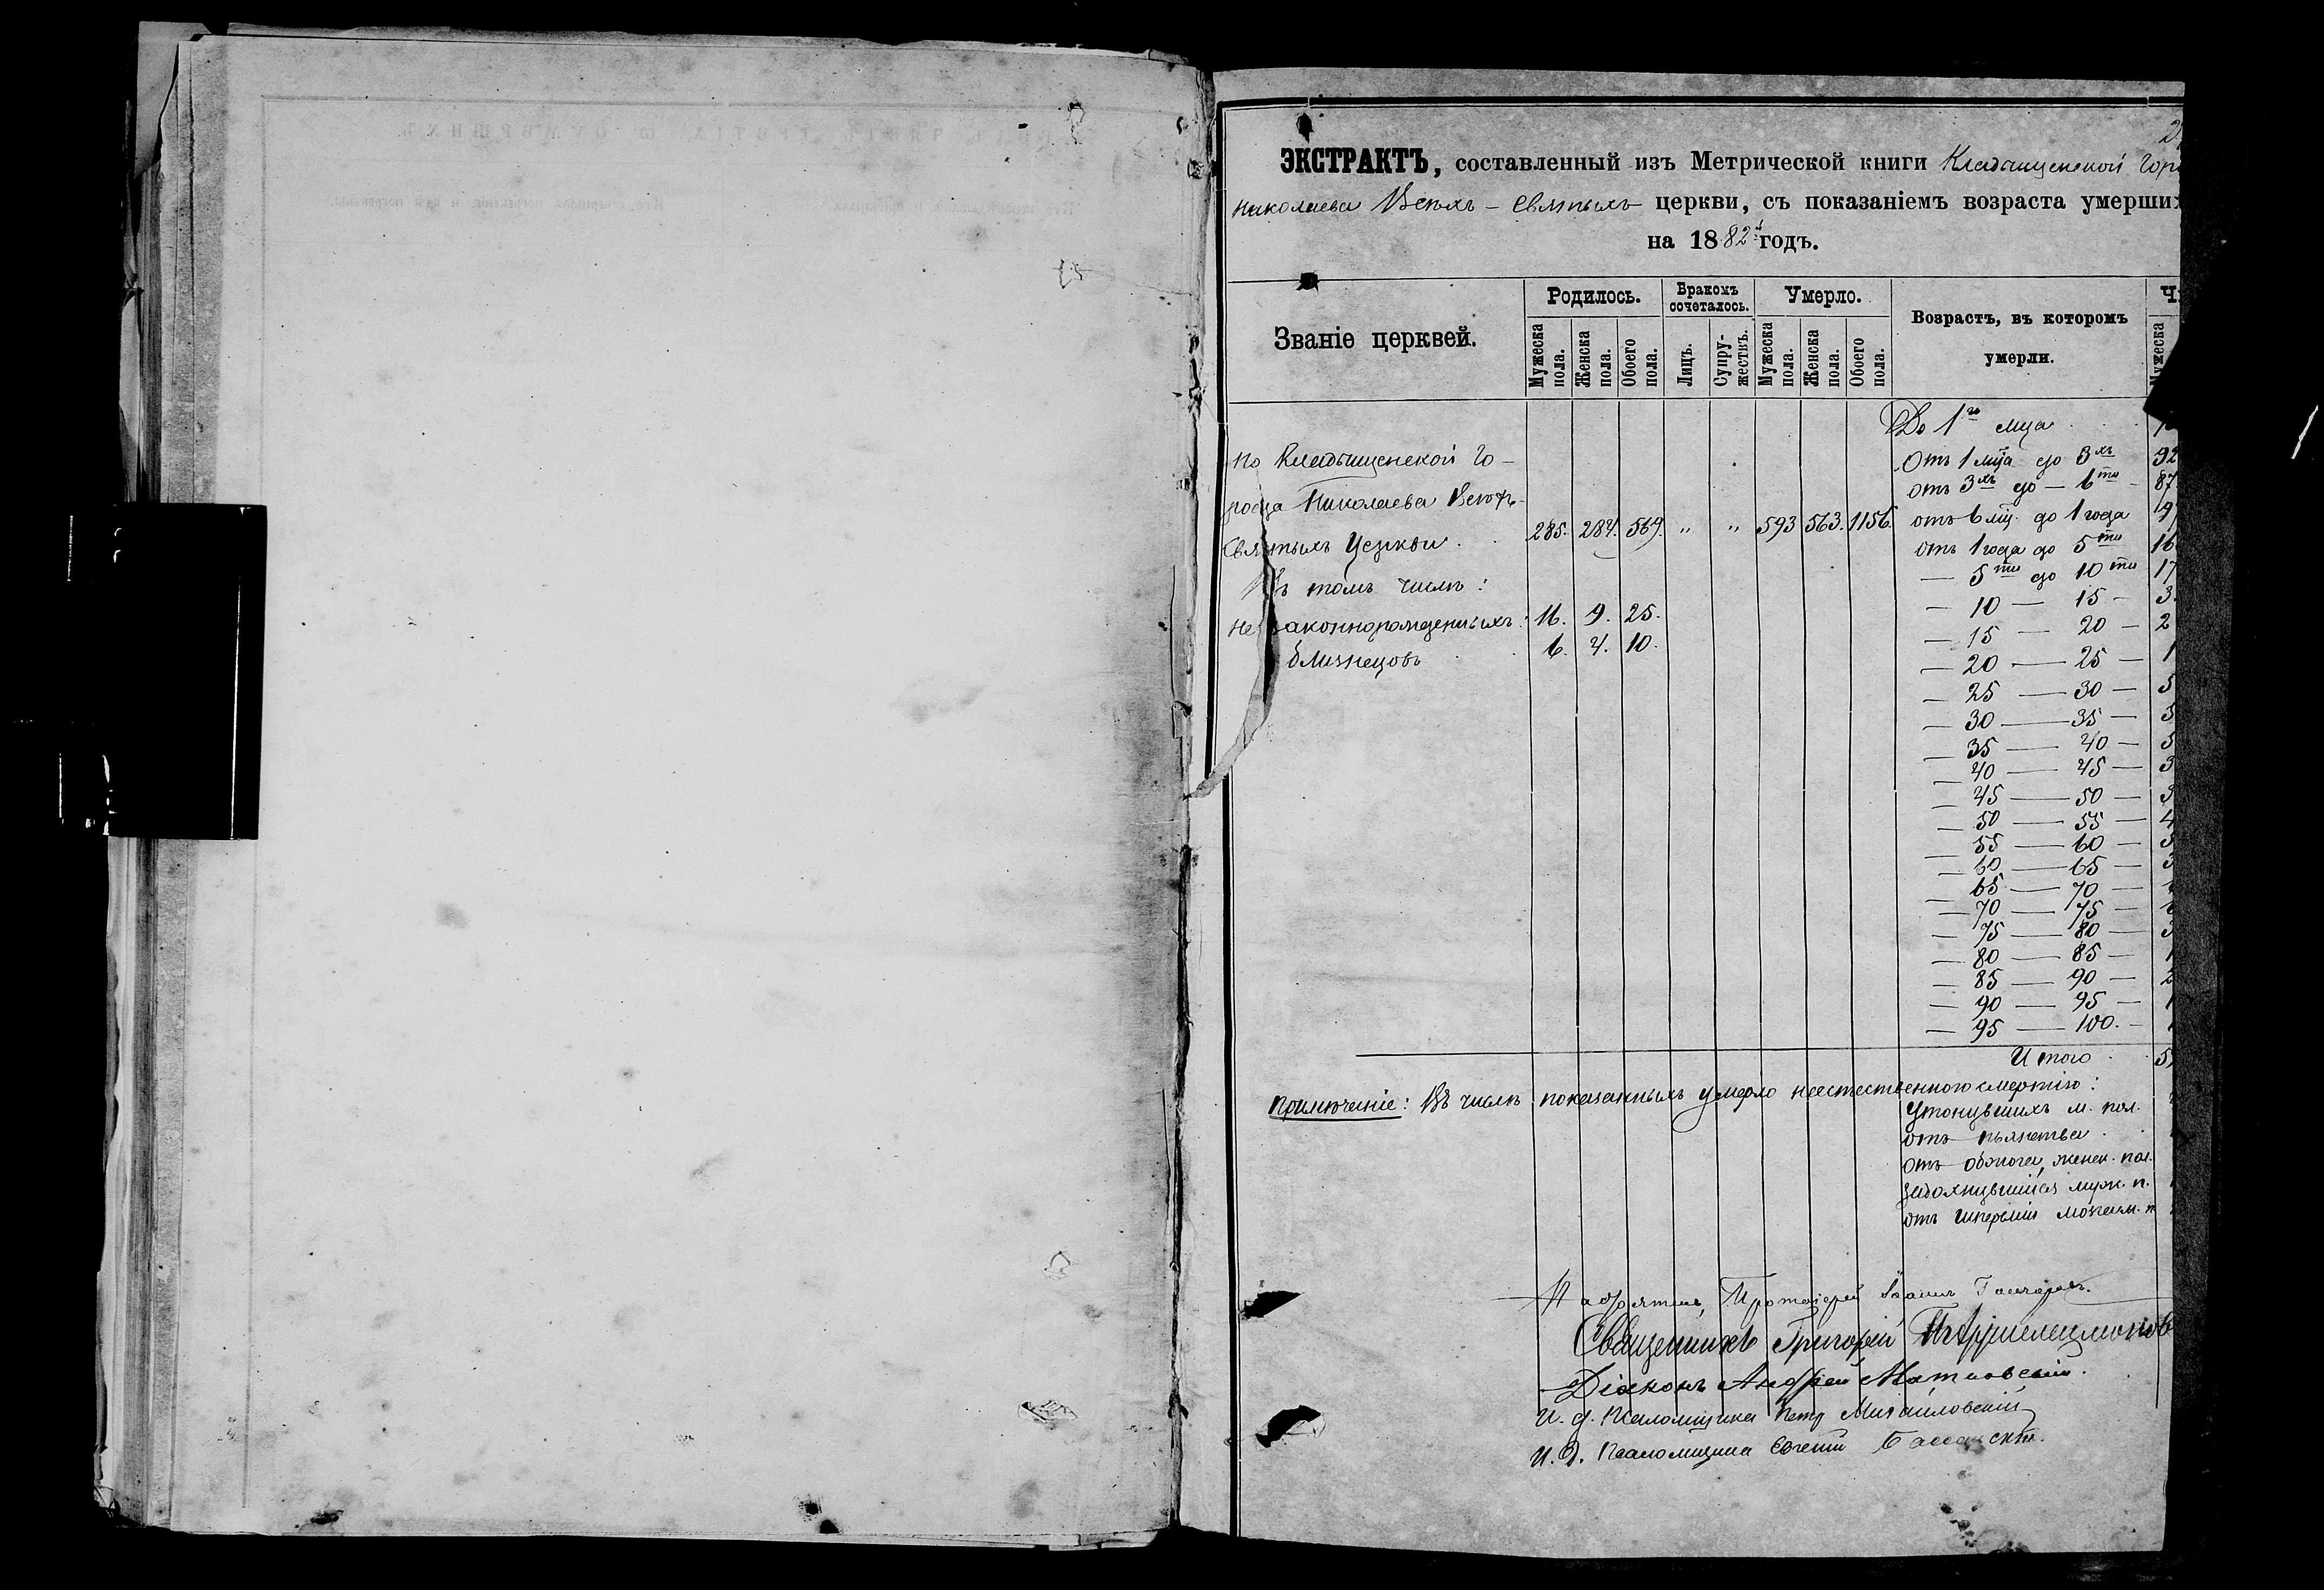 ЭКСТРАКТЪ, составленный изъ Метрической книги Кладбищенской Горо
Николаева Всѣхъ-Святыхъ церкви, съ показаніемъ возраста умерших
на 1882й годъ.
Званіе церквей.
Родилось.
Бракомъ сочеталось.
Умерло.
Возрастъ, въ которомъ умерли.
Мужеска пола.
Женска пола.
Обоего пола.
Лицъ.
Супружествъ.
Мужеска пола.
Женска пола.
Обоего пола.
Мужеска
До 1го мца
По Кладбищенской Го-
отъ 1 мца до 3хъ 92
отъ 3хъ до — 6ти — 87
рода Николаева Всѣхъ-
Святыхъ Церкви 285. 284. 569. " " 593 563. 1156.
отъ 6 мц. до 1 года
отъ 1 года до 5ти 16
Въ томъ числѣ:
— 5ти до 10ти 17
незаконнорожденныхъ: 16. 9. 25.
— 10 — 15 — 3
близнецовъ 6. 4. 10.
— 15 — 20 — 2
— 20 — 25 — 1
— 25 — 30 — 5
— 30 — 35 — 3
— 35 — 40 — 5
— 40 — 45 — 3
— 45 — 50 — 3
— 50 — 55 — 4
— 55 — 60 — 3
— 60 — 65 — 3
— 65 — 70 —
— 70 — 75 —
— 75 — 80 — 3
— 80 — 85 — 1
— 85 — 90 — 2
— 90 — 95 — 1
— 95 — 100. —
Итого 5
Примѣчаніе: Въ числѣ показанныхъ умерло неестественною смертію:
Утонувшихъ м. пол.
отъ пьянства
отъ обжога, женск. пол.
задохнувшійся муж. п.
отъ
Протоіерей
Священникъ Григорій
Діаконъ Андрей
И. д. Псаломщика Петр Михайловскій
И. д. Псаломщика